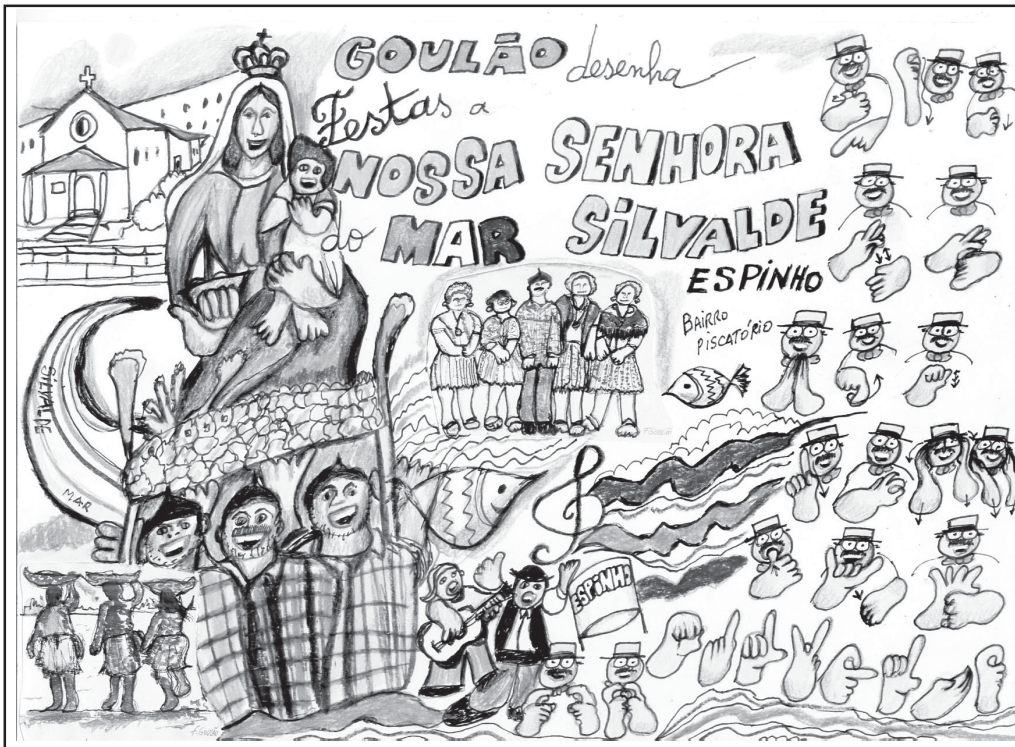 GOULÃO desenha
Festas a
NOSSA SENHORA
do MAR SiLVALDE
ESPiNHO
BAiRRO
PiSCATÓRiO
SILVALDE
MAR
ESPiNHO
F.Goulão